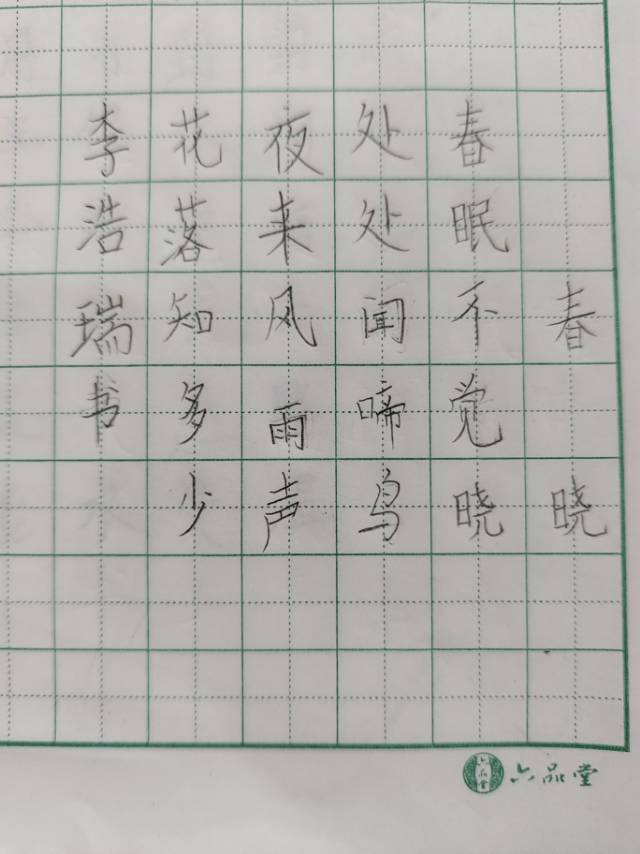 春晓
春眠不觉晓
处处闻啼鸟
夜来风雨声
花落知多少
李浩瑞书
六品堂
六品堂